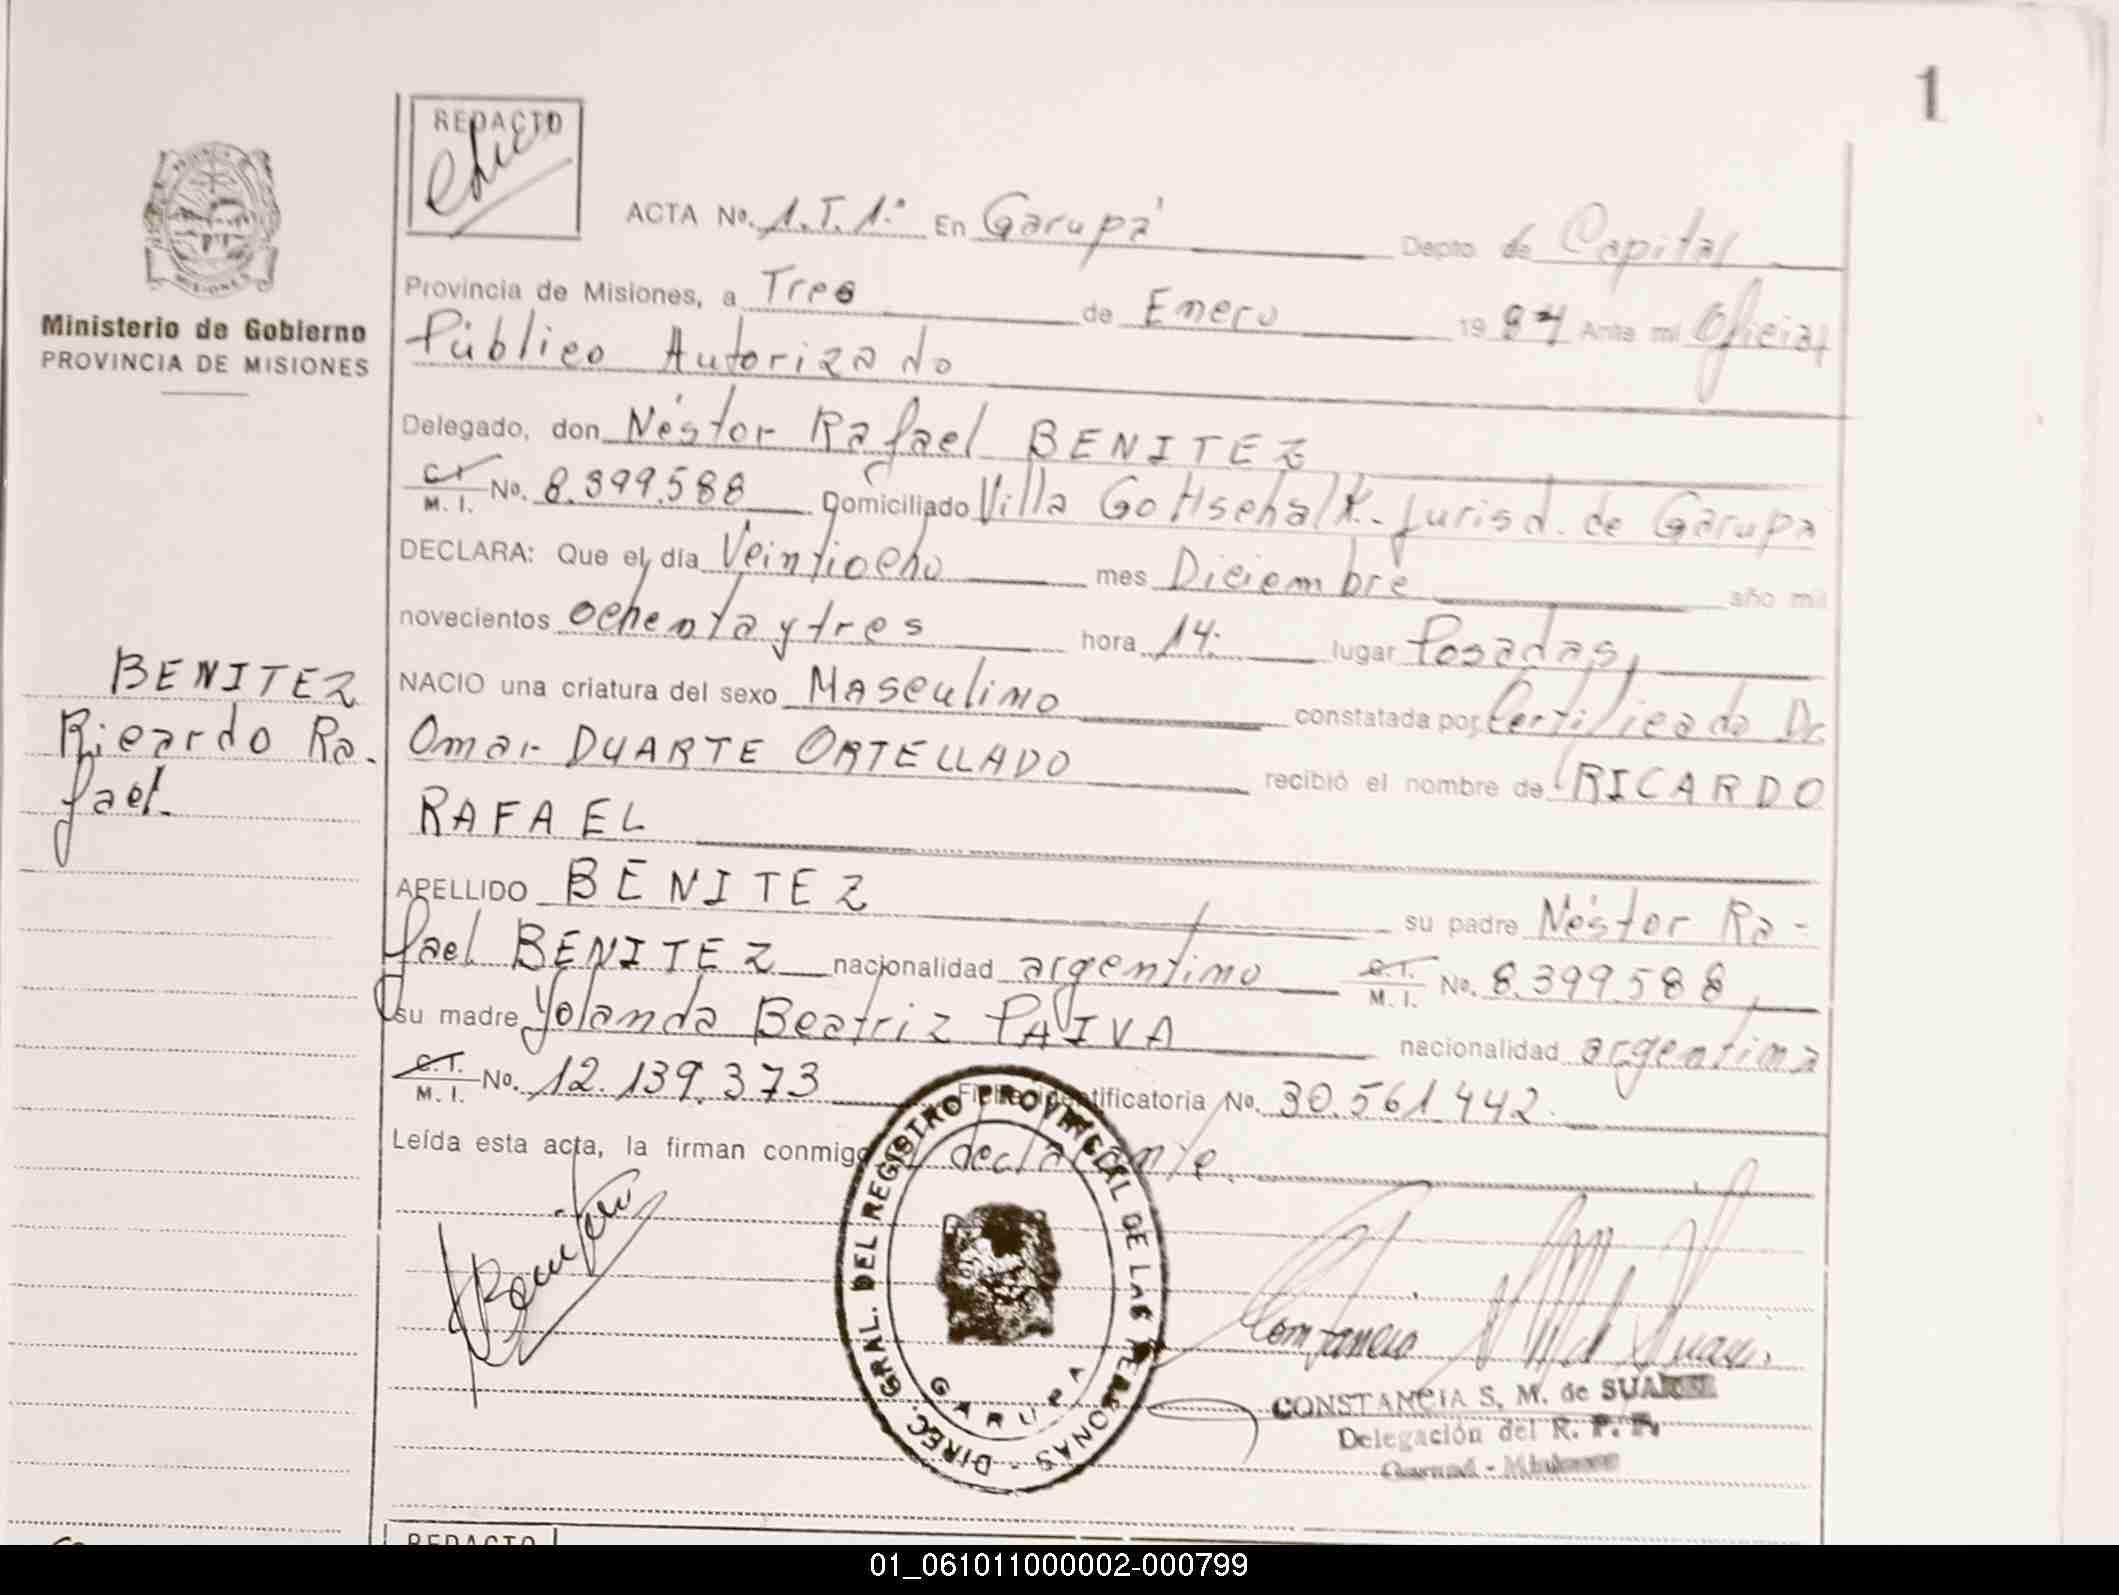 1
REDACTO
ACTA No. 1.T.1.º En Garupá Depto de Capital
Provincia de Misiones, a Tres de Enero 1984 Ante mi Oficial
Público Autorizado
Ministerio de Gobierno
PROVINCIA DE MISIONES
Delegado, don Néstor Rafael BENITEZ
C.I. M. I. No. 8.399.588 Domiciliado Villa Gottschalk. Jurisd. de Garupa
DECLARA: Que el día Veintiocho mes Diciembre año mil
novecientos ochenta y tres hora 14. lugar Posadas,
NACIO una criatura del sexo Masculino constatada por Certificado Dr.
Omar DUARTE ORTELLADO recibió el nombre de RICARDO
RAFAEL
BENITEZ
Ricardo Ra-
fael.
APELLIDO BENITEZ su padre Néstor Ra-
fael BENITEZ nacionalidad argentino C.I. M. I. No. 8.399.588,
su madre Yolanda Beatriz PAIVA nacionalidad argentina
C.I. M. I. No. 12.139.373 Ficha identificatoria No. 30.561.442.
Leída esta acta, la firman conmigo el declarante.
DIREC. GRAL. DEL REGISTRO PROVINCIAL DE LAS PERSONAS -
GARUPA
CONSTANCIA S. M. de SUAREZ
Delegación del R. P. P.
Garupá - Misiones
REDACTO
01_061011000002-000799